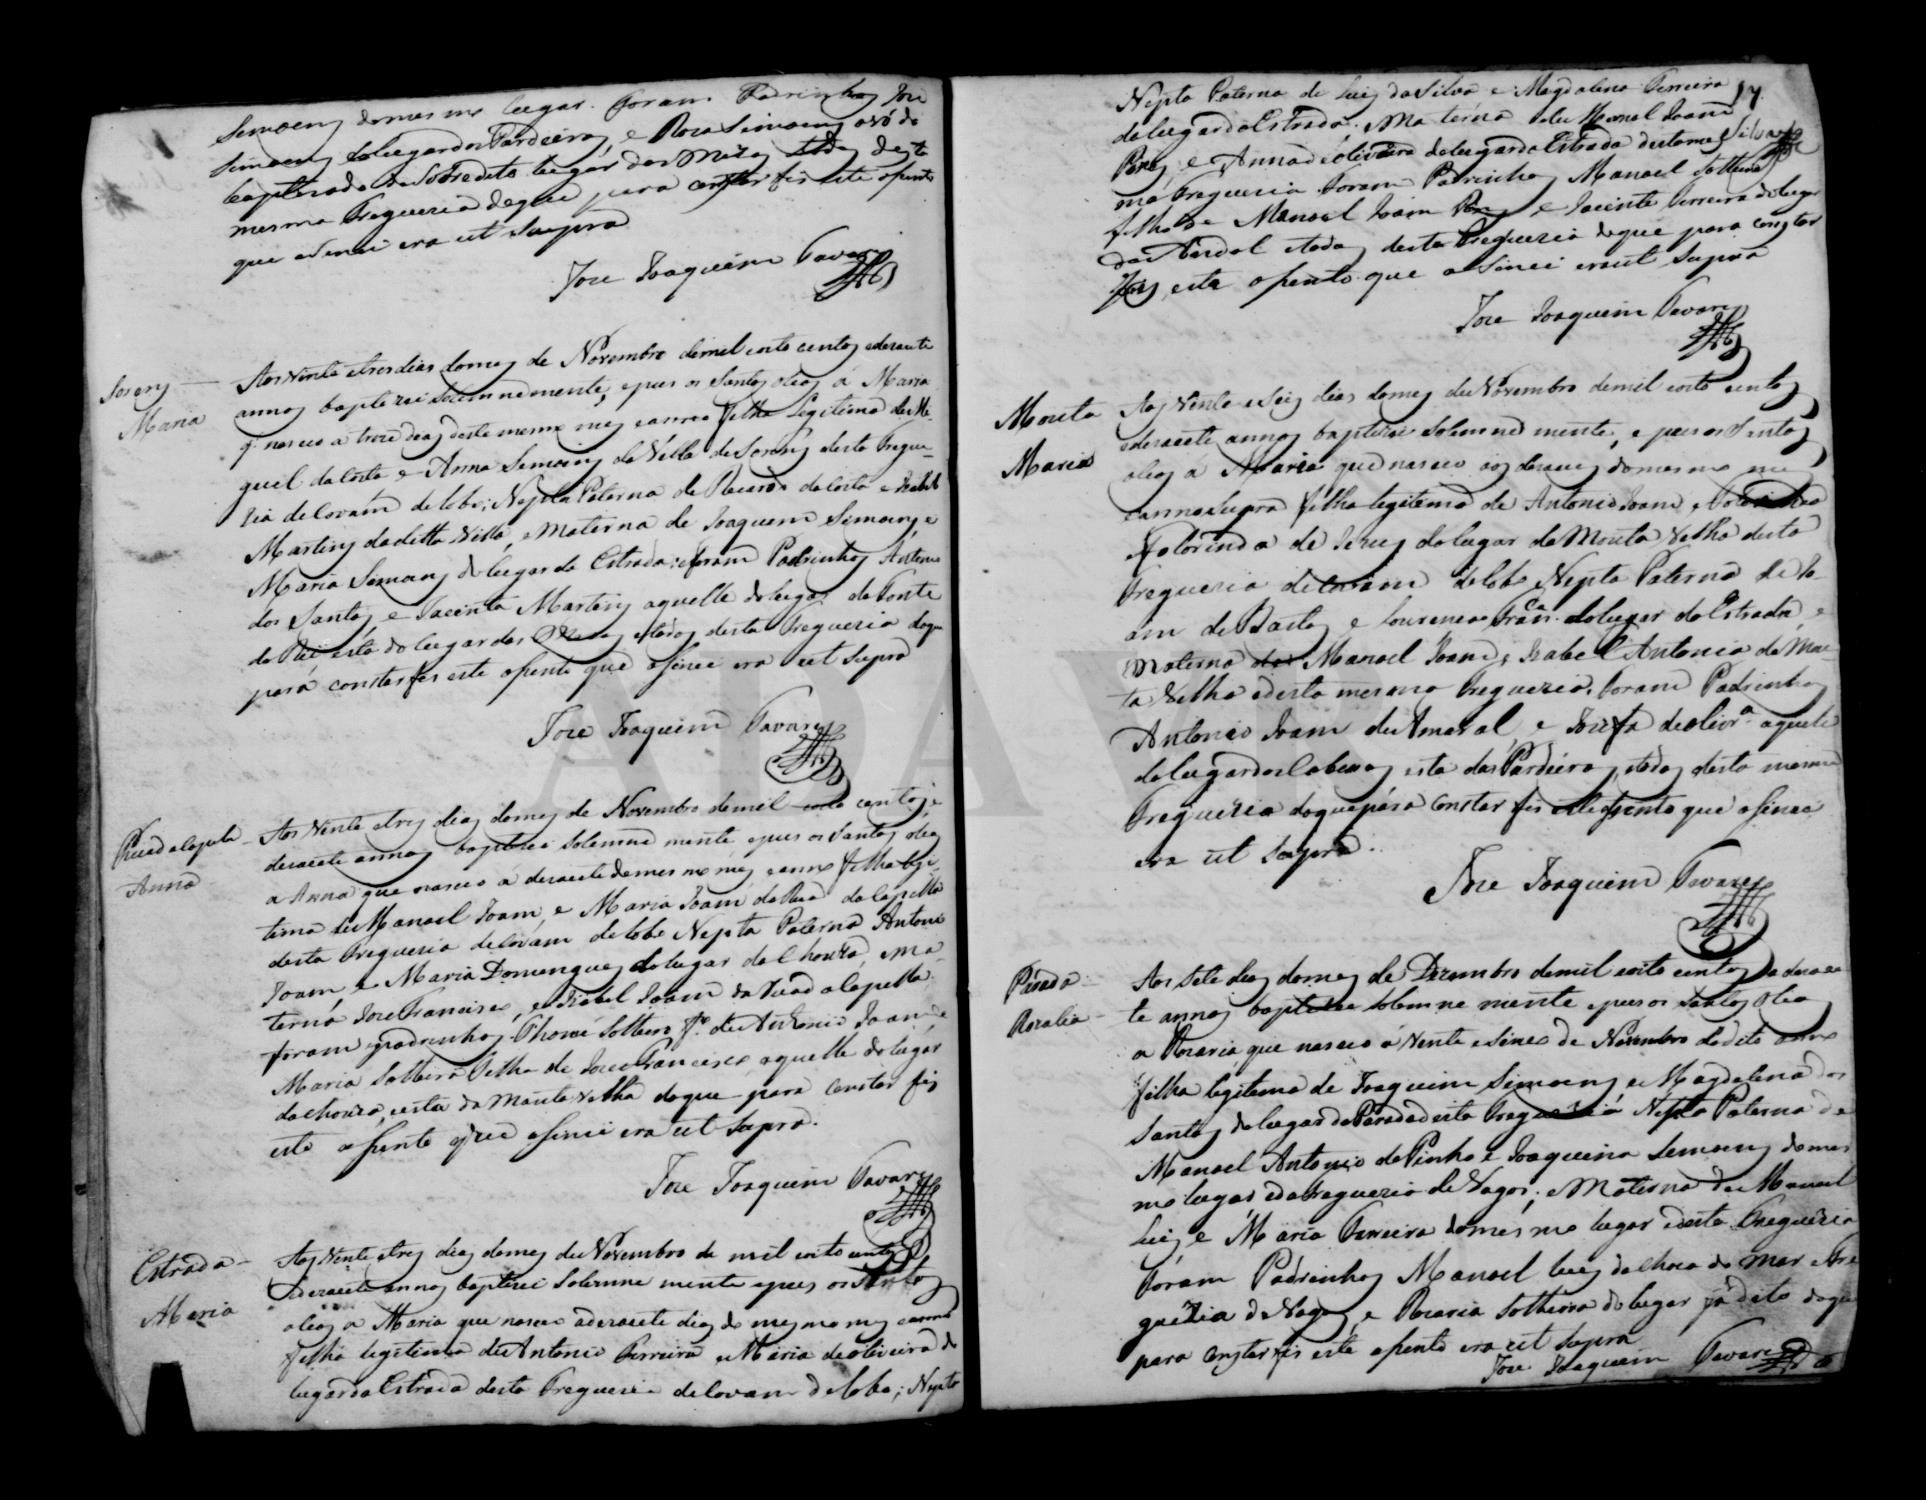 Simoens do mesmo lugar. Foram Padrinhos Jose
Simoens do lugar dos Pardieiros, e Rosa Simoens avó do
baptizado do sobredito lugar das todos desta
mesma Freguezia de que para constar fis este asento
que asinei era ut supra
Jose Joaquim Tavares
Sorens
Maria
Aos vinte e tres dias do mes de Novembro de mil oito centos e dezacete
annos baptizei solemnemente, e pus os Santos oleos a Maria
q nasceo a treze dias deste mesmo mes e anno filha Legitima de Mi-
guel da Costa e Anna Simoens da Villa de Sorens desta Fregue-
zia de Covam de Lobo; Nepta Paterna de da Costa e Izabel
Martins da ditta Villa, e Materna de Joaquim Simoens, e
Maria Simoens do lugar da Estrada: foram Padrinhos Antonio
dos Santos, e Jacinta Martins aquelle do lugar da Fonte
do Rei esta do lugar das e todos desta Freguezia de que
para constar fis este asento que asinei era ut supra
Jose Joaquim Tavares
Rua da Capela
Anna
Aos vinte e tres dias do mes de Novembro de mil oito centos, e
dezacete annos baptizei solemne mente e pus os Santos oleos
a Anna que nasceo a dezacete do mesmo mes e anno filha legi-
tima de Manoel Joam, e Maria Joam da Rua da Capella
desta Freguezia de Covam de Lobo Nepta Paterna Antonio
Joam, e Maria Domingues do lugar da Chouza, e ma-
terna Jose Francisco, e Izabel Joam da Rua da Capella
foram padrinhos Thomé Solteiro fº de Antonio Joam, e
Maria Solteira filha de Jose Francisco, aquelle do lugar
da Chouza, esta da Mouta Velha de que para constar fis
este asento que asinei era ut supra.
Jose Joaquim Tavares
Estrada
Maria
Aos vinte e tres dias do mes de Novembro de mil oito centos
e dezacete annos baptizei solemne mente e pus os Santos
oleos a Maria que nasceo a dezacete dias do mesmo mes e anno
filha legitima de Antonio Ferreira e Maria de Oliveira do
lugar da Estrada desta Freguezia de Covam de Lobo; Nepta
17
Nepta Paterna de Luis da Silva e Magdalena Ferreira
do lugar da Estrada: Materna de Manoel Joam
Pires e Anna de Oliveira do lugar da Estrada desta mes Silva
ma Freguezia Foram Padrinhos Manoel Solteiro
filho de Manoel Joam e Jacinta Ferreira do lugar
do Andal e todos desta Freguezia de que para constar
fis este asento que asinei era ut supra
Jose Joaquim Tavares
Mouta
Maria
Aos vinte e seis dias do mes de Novembro de mil oito centos
e dezacete annos baptizei solemne mente, e pus os Santos
oleos a Maria que nasceo aos dezaseis do mesmo mes
e anno supra filha legitima de Antonio Joam, e
Florinda de Jezus do lugar da Mouta Velha desta
Freguezia de Covam de Lobo Nepta Paterna de Jo-
am de Bastos e Lourença Franca do lugar da Estrada, e
Materna de Manoel Joam, e Izabel Antonia da Mou-
ta Velha e desta mesma Freguezia. Foram Padrinhos
Antonio Joam do Amaral, e Josefa de Olivra aquele
do lugar dos Cabecos esta dos Pardieiros, e todos desta mesma
Freguezia de que para constar fis este asento que asinei
era ut supra.
Jose Joaquim Tavares
Parada
Rozalia
Aos sete dias do mes de Dezembro de mil oito centos e dezace
te annos baptizei solemne mente e pus os Santos oleos
a Rozaria que nasceo á vinte e sinco de Novembro do dito anno
filha legitima de Joaquim Simoens, e Magdalena dos
Santos do lugar da Parada desta Freguezia Nepta Paterna de
Manoel Antonio de Pinho e Joaquina Simoens do mes
mo lugar e da Freguezia de Vagos; e Materna de Manoel
Luis e Maria Ferreira do mesmo lugar e desta Freguezia
Foram Padrinhos Manoel Luis da Choca do Mar e Fre
guezia de Vagos, e Rozaria Solteira do lugar já dito de que
para constar fis este asento era ut supra
Jose Joaquim Tavares
ADAVR